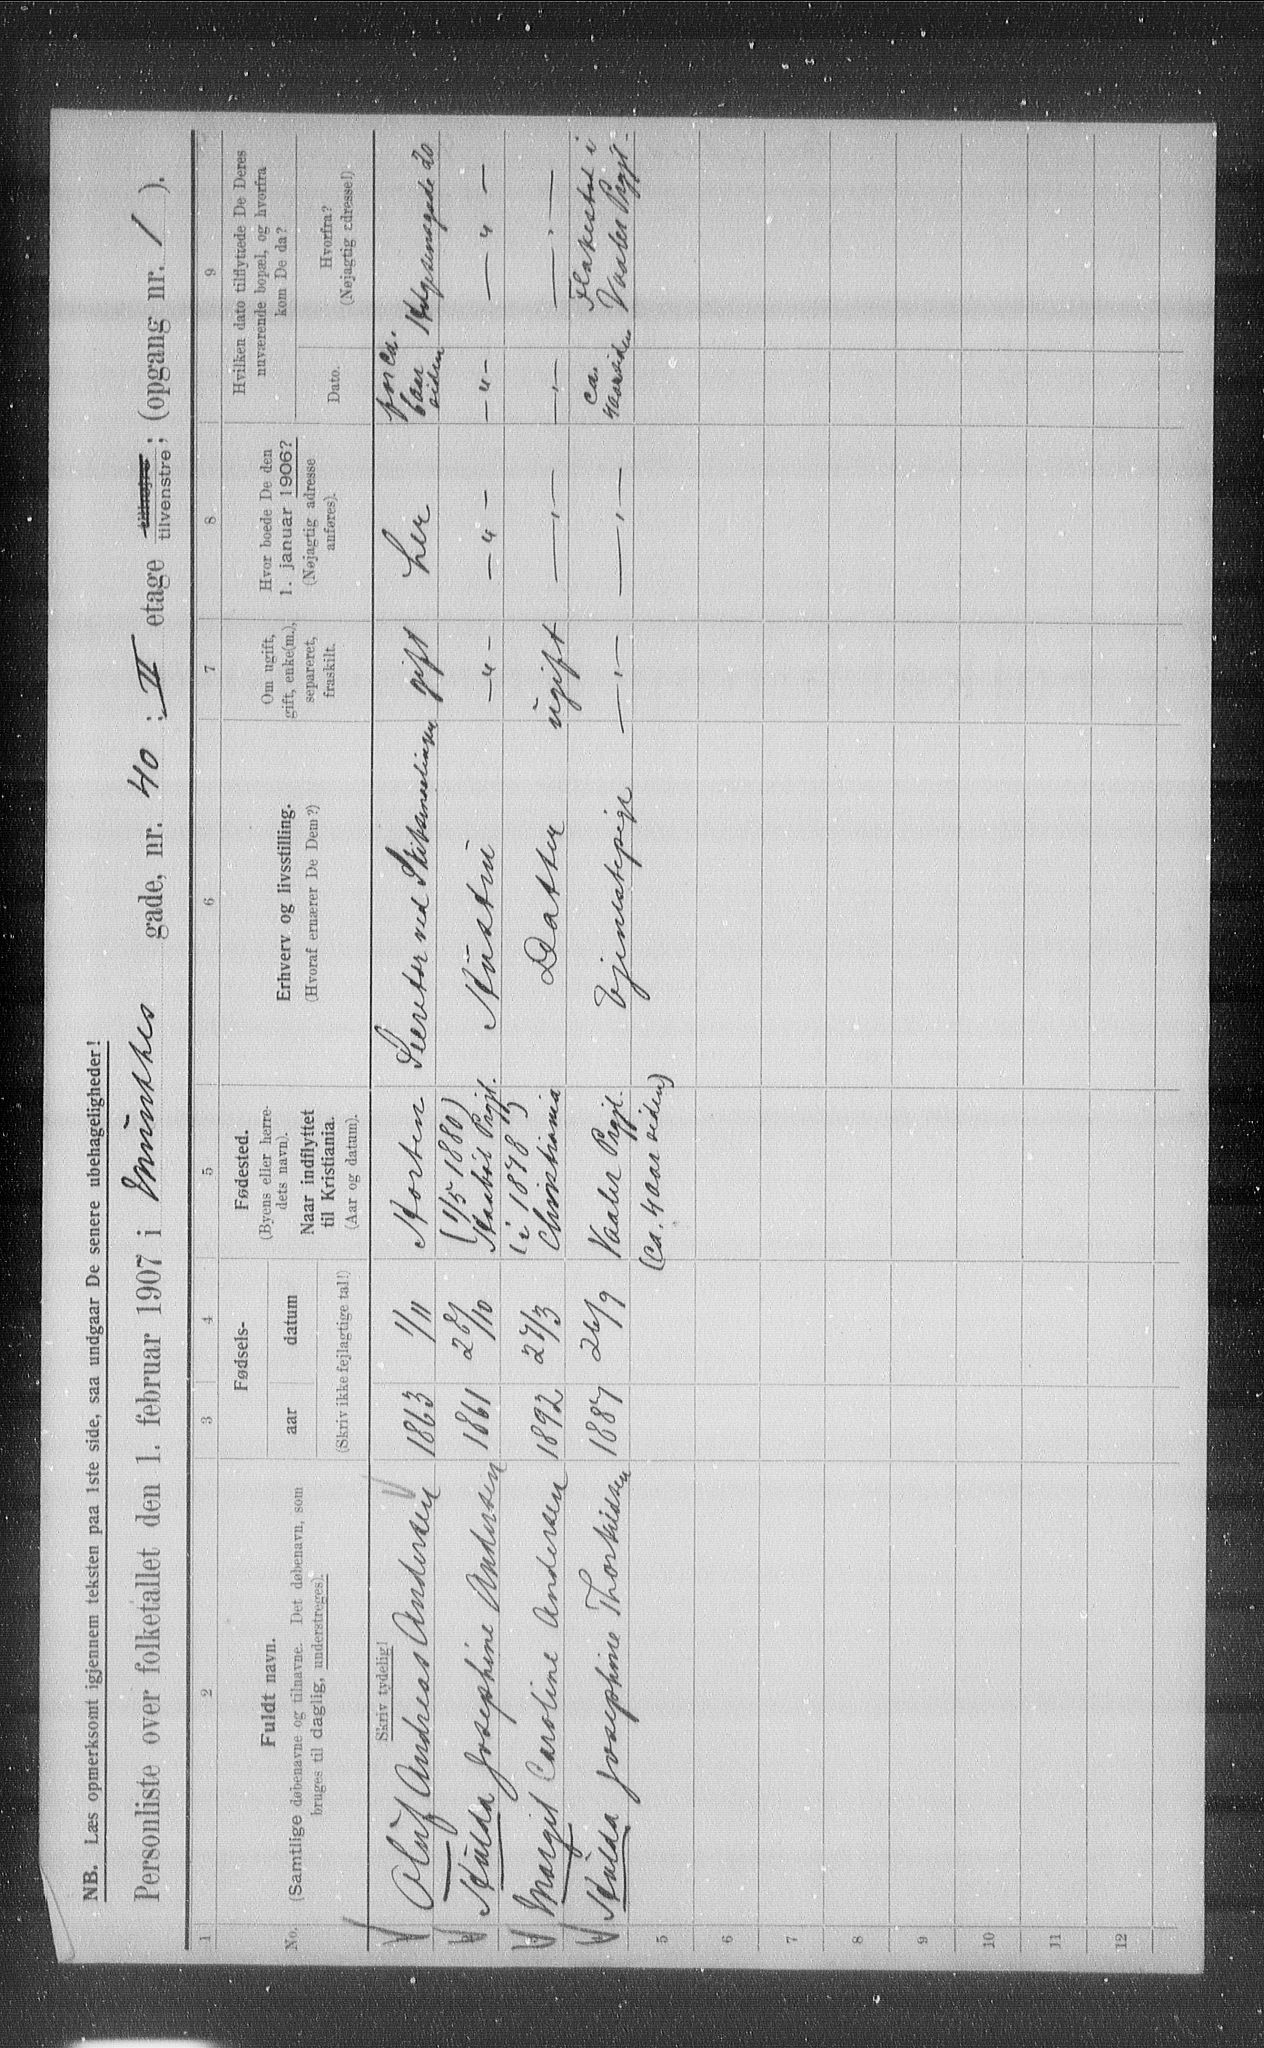 NB. Læs opmerksomt igjennem teksten paa 1ste side, saa undgaar De senere ubehageligheder!
Personliste over folketallet den 1. februar 1907 i Munkhes gade, nr. 40 ; II etage tilhøjre tilvenstre ; (opgang nr. 1 ).
1 2 3 4 5 6 7 8 9
No.
Fuldt navn.
(Samtlige døbenavne og tilnavne. Det døbenavn, som
bruges til daglig, understreges).
Fødsels-
aar datum
(Skriv ikke fejlagtige tal!)
Fødested.
(Byens eller herre-
dets navn).
Naar indflyttet
til Kristiania.
(Aar og datum).
Erhverv og livsstilling.
(Hvoraf ernærer De Dem?)
Om ugift,
gift, enke(m.),
separeret,
fraskilt.
Hvor boede De den
1. januar 1906?
(Nøjagtig adresse
anføres).
Hvilken dato tilflyttede De Deres
nuværende bopæl, og hvorfra
kom De da?
Dato.
Hvorfra?
(Nøjagtig adresse!)
Skriv tydelig!
Oluf Andreas Andersen 1863 1/11 Horten (1/5 1880) Secretær ved gift her for ca. 6 aar siden Helgesensgade 20
Hulda Josephine Andersen 1861 28/10 Haabøl Prgjl. (i 1878) Hustru — " — — " — — " — — " —
Margit Caroline Andersen 1892 27/3 Christiania Datter ugift — " — — " — — " —
Hulda Josephine Thorkildsen 1887 26/9 Vaaler Prgjl. (ca. 4 aar siden) Tjenestepige — " — — " — ca. 4 aar siden i Vaaler Prgjl.
5
6
7
8
9
10
11
12